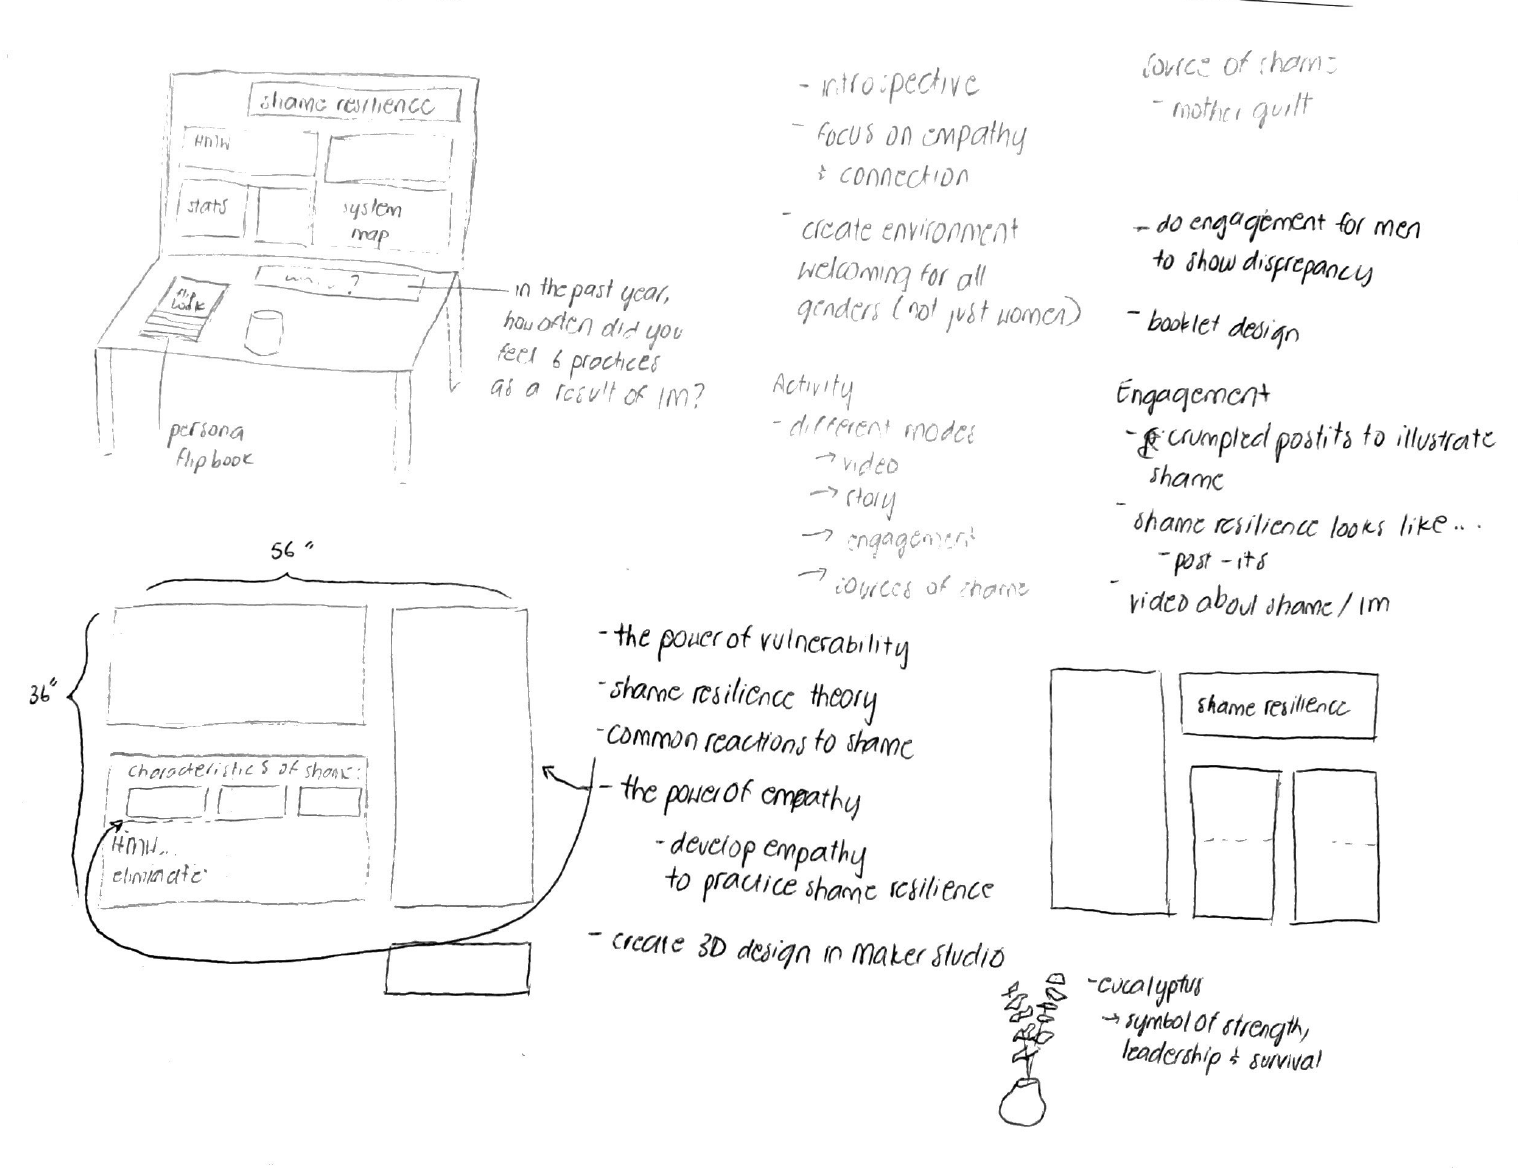 shame resilience
HMW
stats
system
map
?
flip
book
in the past year,
how often did you
feel 6 practices
as a result of IM?
persona
flipbook
- introspective
- focus on empathy
& connection
- create environment
welcoming for all
genders (not just women)
source of shame
- mother guilt
- do engagement for men
to show discrepancy
- booklet design
Activity
- different modes
→ video
→ story
→ engagement
→ sources of shame
Engagement
- crumpled postits to illustrate
shame
- shame resilience looks like...
- post-its
- video about shame / IM
56"
36"
characteristics of shame:
HMW...
eliminate:
- the power of vulnerability
- shame resilience theory
- common reactions to shame
- the power of empathy
- develop empathy
to practice shame resilience
- create 3D design in Maker Studio
shame resilience
- eucalyptus
→ symbol of strength,
leadership & survival